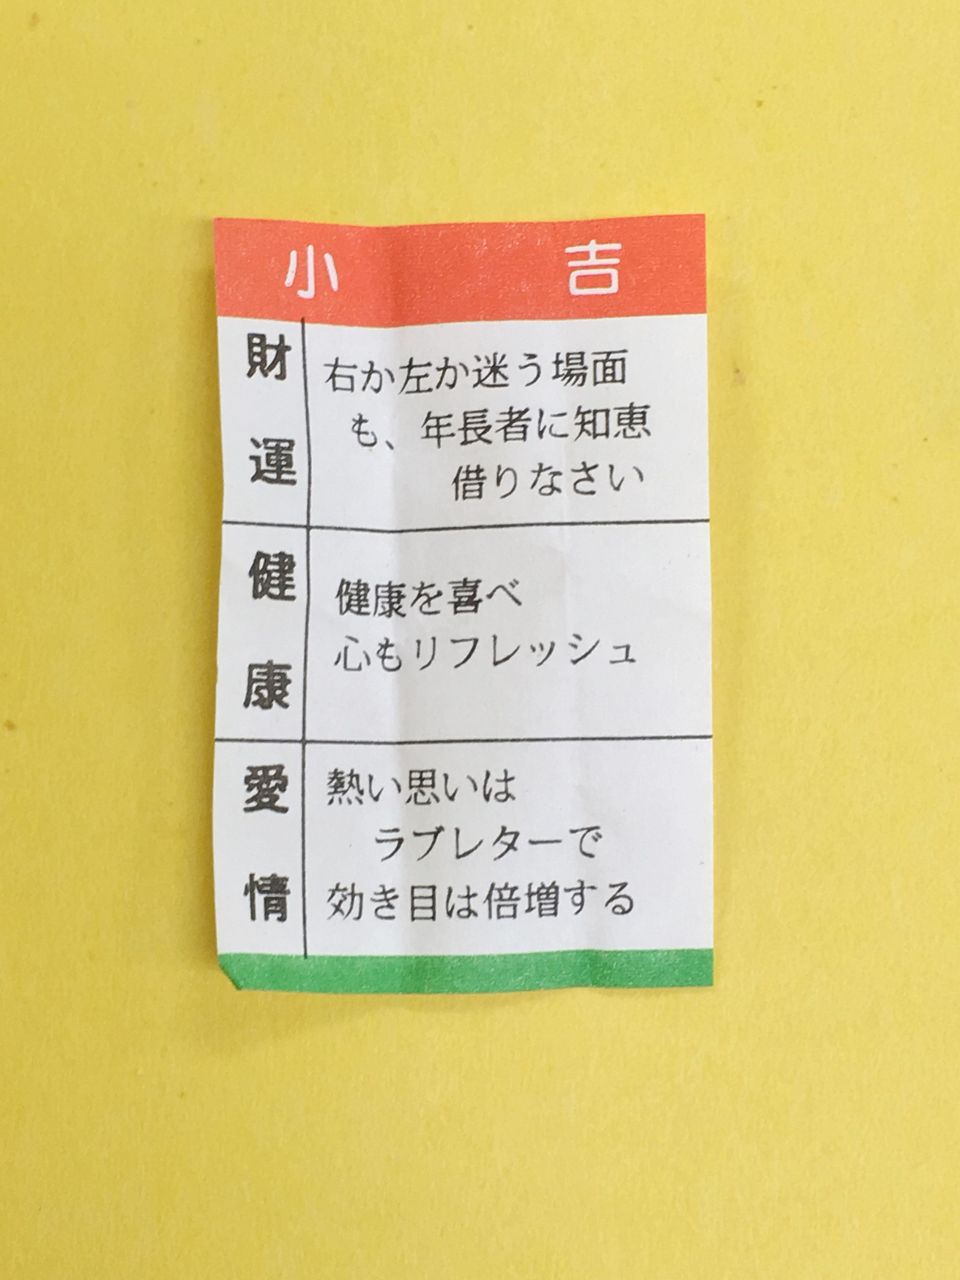 小吉
財運
右か左か迷う場面
も、年長者に知恵
借りなさい
健康
健康を喜べ
心もリフレッシュ
愛情
熱い思いは
ラブレターで
効き目は倍増する